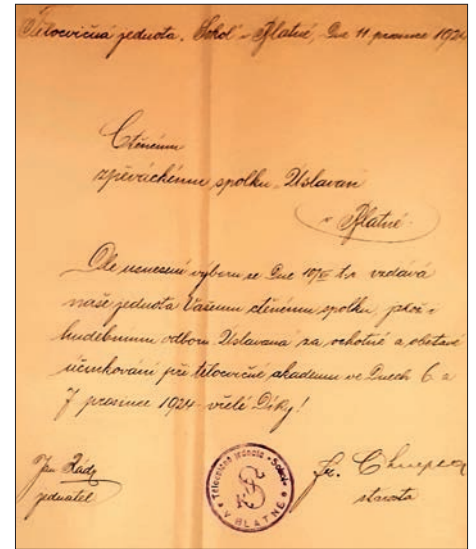 Tělocvičná jednota „Sokol“ Blatné, Dne 11 prosince 1924
Ctěnému
zpěváckému spolku „Úslavan“
v Blatné.
Dle usnesení výboru ze Dne 10/XII t.r. vzdává
naše jednota Vašemu ctěnému spolku, jakož i
hudebnímu odboru „Úslavana“ za ochotné a obětavé
účinkování při tělocvičné akademii ve Dnech 6. a
7 prosince 1924 vřelé Díky!
Jan
jednatel
Tělocvičná jednota „Sokol“
V BLATNÉ
Fr.
starosta